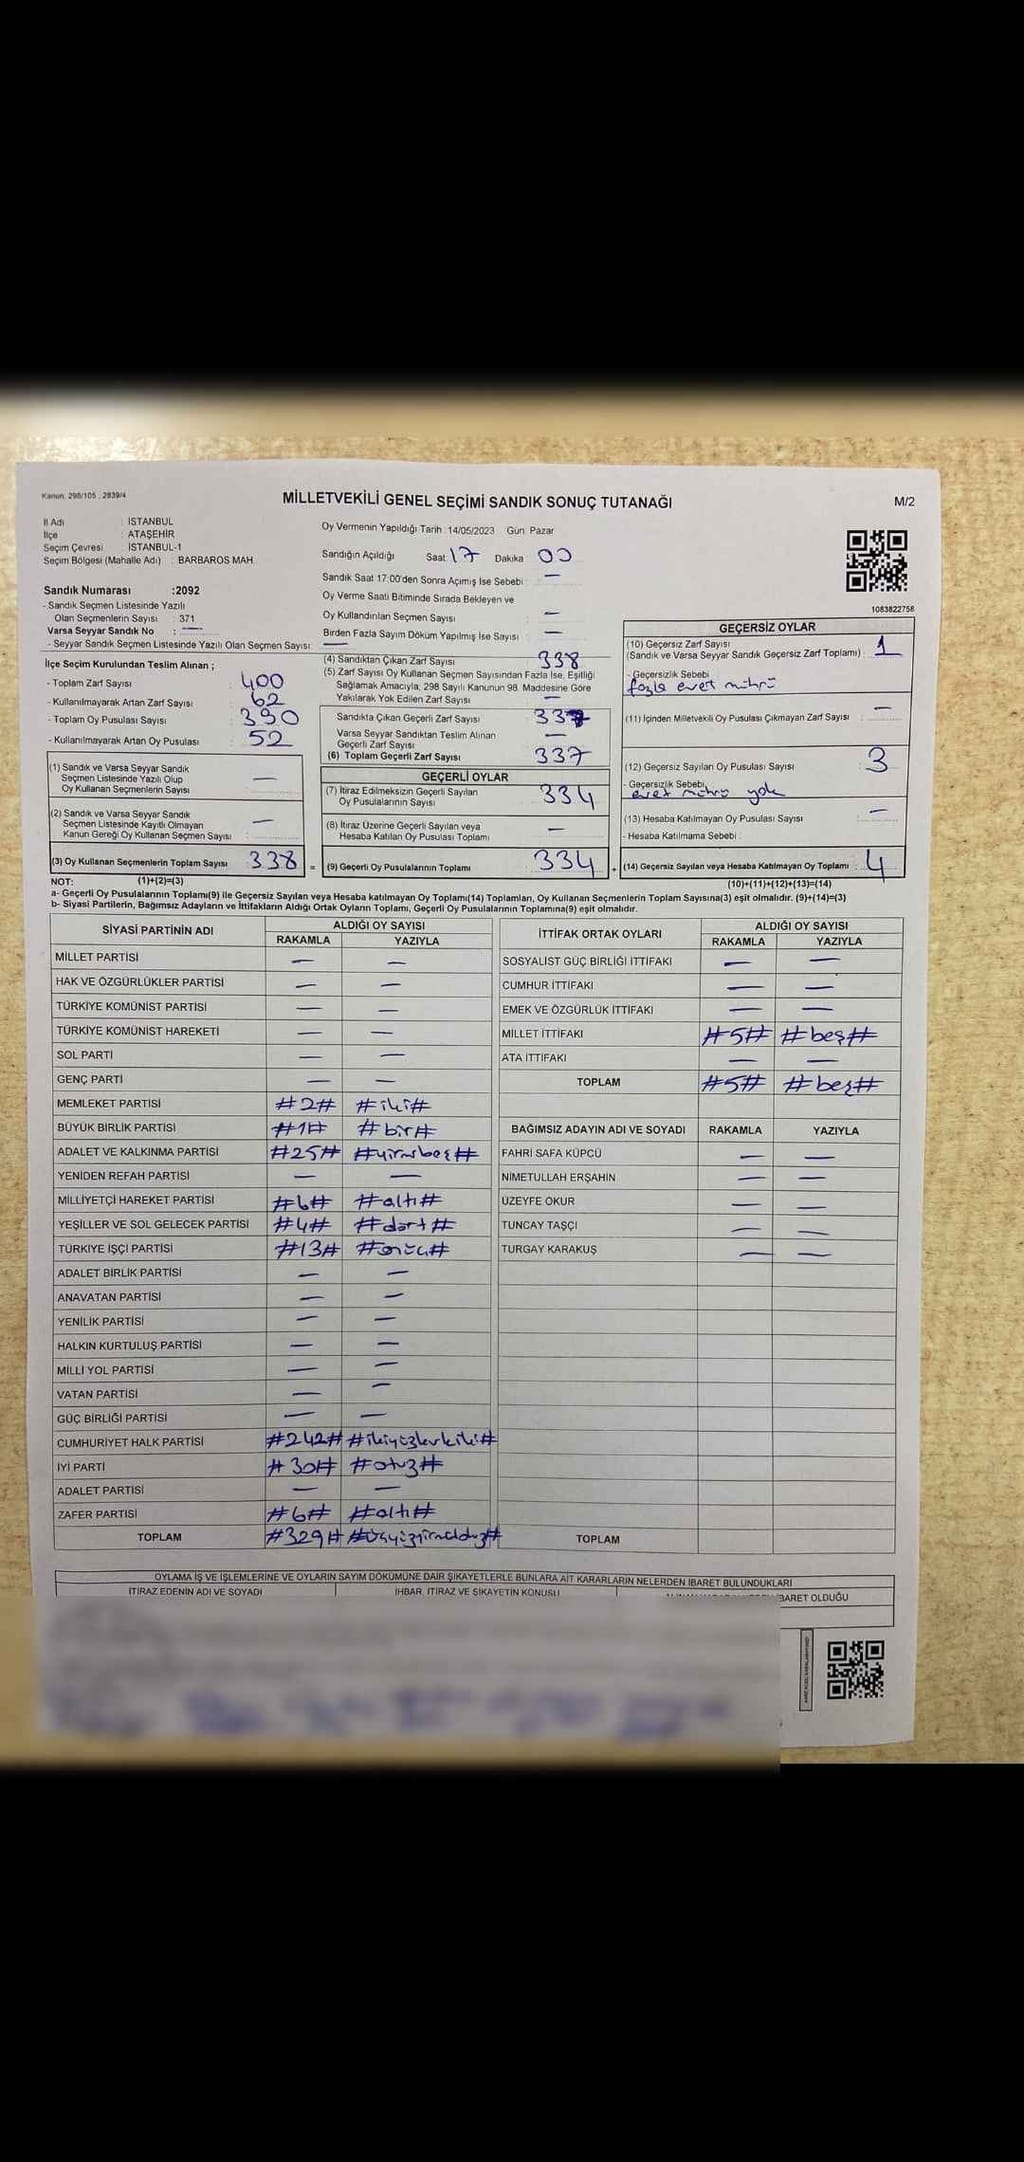 Kanun: 298/105 , 2839/4
MİLLETVEKİLİ GENEL SEÇİMİ SANDIK SONUÇ TUTANAĞI
M/2
İl Adı : İSTANBUL
İlçe : ATAŞEHİR
Seçim Çevresi : İSTANBUL-1
Seçim Bölgesi (Mahalle Adı) : BARBAROS MAH.
Sandık Numarası :2092
- Sandık Seçmen Listesinde Yazılı
Olan Seçmenlerin Sayısı : 371
Varsa Seyyar Sandık No : —
- Seyyar Sandık Seçmen Listesinde Yazılı Olan Seçmen Sayısı: —
İlçe Seçim Kurulundan Teslim Alınan ;
- Toplam Zarf Sayısı : 400
- Kullanılmayarak Artan Zarf Sayısı : 62
- Toplam Oy Pusulası Sayısı : 390
- Kullanılmayarak Artan Oy Pusulası : 52
(1) Sandık ve Varsa Seyyar Sandık
Seçmen Listesinde Yazılı Olup
Oy Kullanan Seçmenlerin Sayısı : —
(2) Sandık ve Varsa Seyyar Sandık
Seçmen Listesinde Kayıtlı Olmayan
Kanun Gereği Oy Kullanan Seçmen Sayısı : —
(3) Oy Kullanan Seçmenlerin Toplam Sayısı : 338
(1)+(2)=(3)
Oy Vermenin Yapıldığı Tarih : 14/05/2023 Gün: Pazar
Sandığın Açıldığı Saat: 17 Dakika : 00
Sandık Saat 17:00'den Sonra Açımış İse Sebebi : —
Oy Verme Saati Bitiminde Sırada Bekleyen ve
Oy Kullandırılan Seçmen Sayısı : —
Birden Fazla Sayım Döküm Yapılmış İse Sayısı : —
(4) Sandıktan Çıkan Zarf Sayısı : 338
(5) Zarf Sayısı Oy Kullanan Seçmen Sayısından Fazla İse, Eşitliği
Sağlamak Amacıyla, 298 Sayılı Kanunun 98. Maddesine Göre
Yakılarak Yok Edilen Zarf Sayısı : —
Sandıkta Çıkan Geçerli Zarf Sayısı : 337
Varsa Seyyar Sandıktan Teslim Alınan
Geçerli Zarf Sayısı : —
(6) Toplam Geçerli Zarf Sayısı : 337
GEÇERLİ OYLAR
(7) İtiraz Edilmeksizin Geçerli Sayılan
Oy Pusulalarının Sayısı : 334
(8) İtiraz Üzerine Geçerli Sayılan veya
Hesaba Katılan Oy Pusulası Toplamı : —
= (9) Geçerli Oy Pusulalarının Toplamı : 334
1083822758
GEÇERSİZ OYLAR
(10) Geçersiz Zarf Sayısı
(Sandık ve Varsa Seyyar Sandık Geçersiz Zarf Toplamı) : 1
- Geçersizlik Sebebi
fazla evet mührü
(11) İçinden Milletvekili Oy Pusulası Çıkmayan Zarf Sayısı : —
(12) Geçersiz Sayılan Oy Pusulası Sayısı : 3
- Geçersizlik Sebebi
evet mührü yok
(13) Hesaba Katılmayan Oy Pusulası Sayısı : —
- Hesaba Katılmama Sebebi :
+ (14) Geçersiz Sayılan veya Hesaba Katılmayan Oy Toplamı : 4
(10)+(11)+(12)+(13)=(14)
NOT:
a- Geçerli Oy Pusulalarının Toplamı(9) ile Geçersiz Sayılan veya Hesaba katılmayan Oy Toplamı(14) Toplamları, Oy Kullanan Seçmenlerin Toplam Sayısına(3) eşit olmalıdır. (9)+(14)=(3)
b- Siyasi Partilerin, Bağımsız Adayların ve İttifakların Aldığı Ortak Oyların Toplamı, Geçerli Oy Pusulalarının Toplamına(9) eşit olmalıdır.
SİYASİ PARTİNİN ADI ALDIĞI OY SAYISI
RAKAMLA YAZIYLA
MİLLET PARTİSİ — —
HAK VE ÖZGÜRLÜKLER PARTİSİ — —
TÜRKİYE KOMÜNİST PARTİSİ — —
TÜRKİYE KOMÜNİST HAREKETİ — —
SOL PARTİ — —
GENÇ PARTİ — —
MEMLEKET PARTİSİ #2# #iki#
BÜYÜK BİRLİK PARTİSİ #1# #bir#
ADALET VE KALKINMA PARTİSİ #25# #yirmibeş#
YENİDEN REFAH PARTİSİ — —
MİLLİYETÇİ HAREKET PARTİSİ #6# #altı#
YEŞİLLER VE SOL GELECEK PARTİSİ #4# #dört#
TÜRKİYE İŞÇİ PARTİSİ #13# #onüç#
ADALET BİRLİK PARTİSİ — —
ANAVATAN PARTİSİ — —
YENİLİK PARTİSİ — —
HALKIN KURTULUŞ PARTİSİ — —
MİLLİ YOL PARTİSİ — —
VATAN PARTİSİ — —
GÜÇ BİRLİĞİ PARTİSİ — —
CUMHURİYET HALK PARTİSİ #242# #ikiyüzkırkiki#
İYİ PARTİ #30# #otuz#
ADALET PARTİSİ — —
ZAFER PARTİSİ #6# #altı#
TOPLAM #329# #üçyüzyirmidokuz#
İTTİFAK ORTAK OYLARI ALDIĞI OY SAYISI
RAKAMLA YAZIYLA
SOSYALİST GÜÇ BİRLİĞİ İTTİFAKI — —
CUMHUR İTTİFAKI — —
EMEK VE ÖZGÜRLÜK İTTİFAKI — —
MİLLET İTTİFAKI #5# #beş#
ATA İTTİFAKI — —
TOPLAM #5# #beş#
BAĞIMSIZ ADAYIN ADI VE SOYADI RAKAMLA YAZIYLA
FAHRİ SAFA KÜPCÜ — —
NİMETULLAH ERŞAHİN — —
ÜZEYFE OKUR — —
TUNCAY TAŞÇI — —
TURGAY KARAKUŞ — —
TOPLAM
OYLAMA İŞ VE İŞLEMLERİNE VE OYLARIN SAYIM DÖKÜMÜNE DAİR ŞİKAYETLERLE BUNLARA AİT KARARLARIN NELERDEN İBARET BULUNDUKLARI
İTİRAZ EDENİN ADI VE SOYADI İHBAR, İTİRAZ VE ŞİKAYETİN KONUSU İBARET OLDUĞU